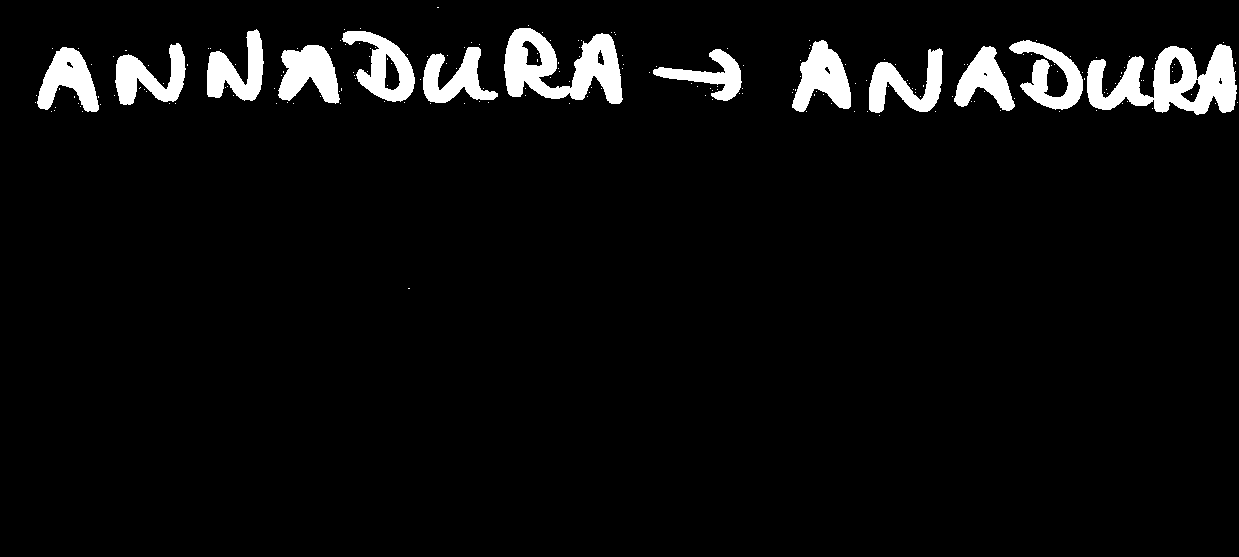 ANNADURA → ANADURA